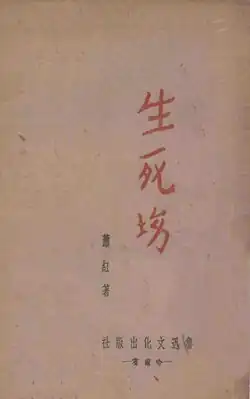 生死場
蕭紅著
魯迅文化出版社
哈爾濱